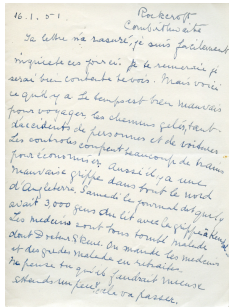 16.1.51 Rockcroft
Combithwaite
Ta lettre m'a rassuré, je suis facilement
inquiète ces jours ci. Je te remercie je
serai bien contente te vois. Mais voici
ce qu'il y a. Le temps est bien mauvais
pour voyager les chemins gelés, tant
d'accidents de personnes et de voitures
Les controls coupent beaucoup de trains
pour économiser. Aussi il y a une
mauvaise grippe dans tout le nord
d'Angleterre. Samedi le journal dit qu'il y
avait 3,000 gens du lit avec la grippe à
Les medecins sont tous tombé malade
dont Docteur. On mande les medecins
et des gardes malade en retraite.
Ne pense tu qu'il faudrait mieux
attends un peu qu'il va passer.